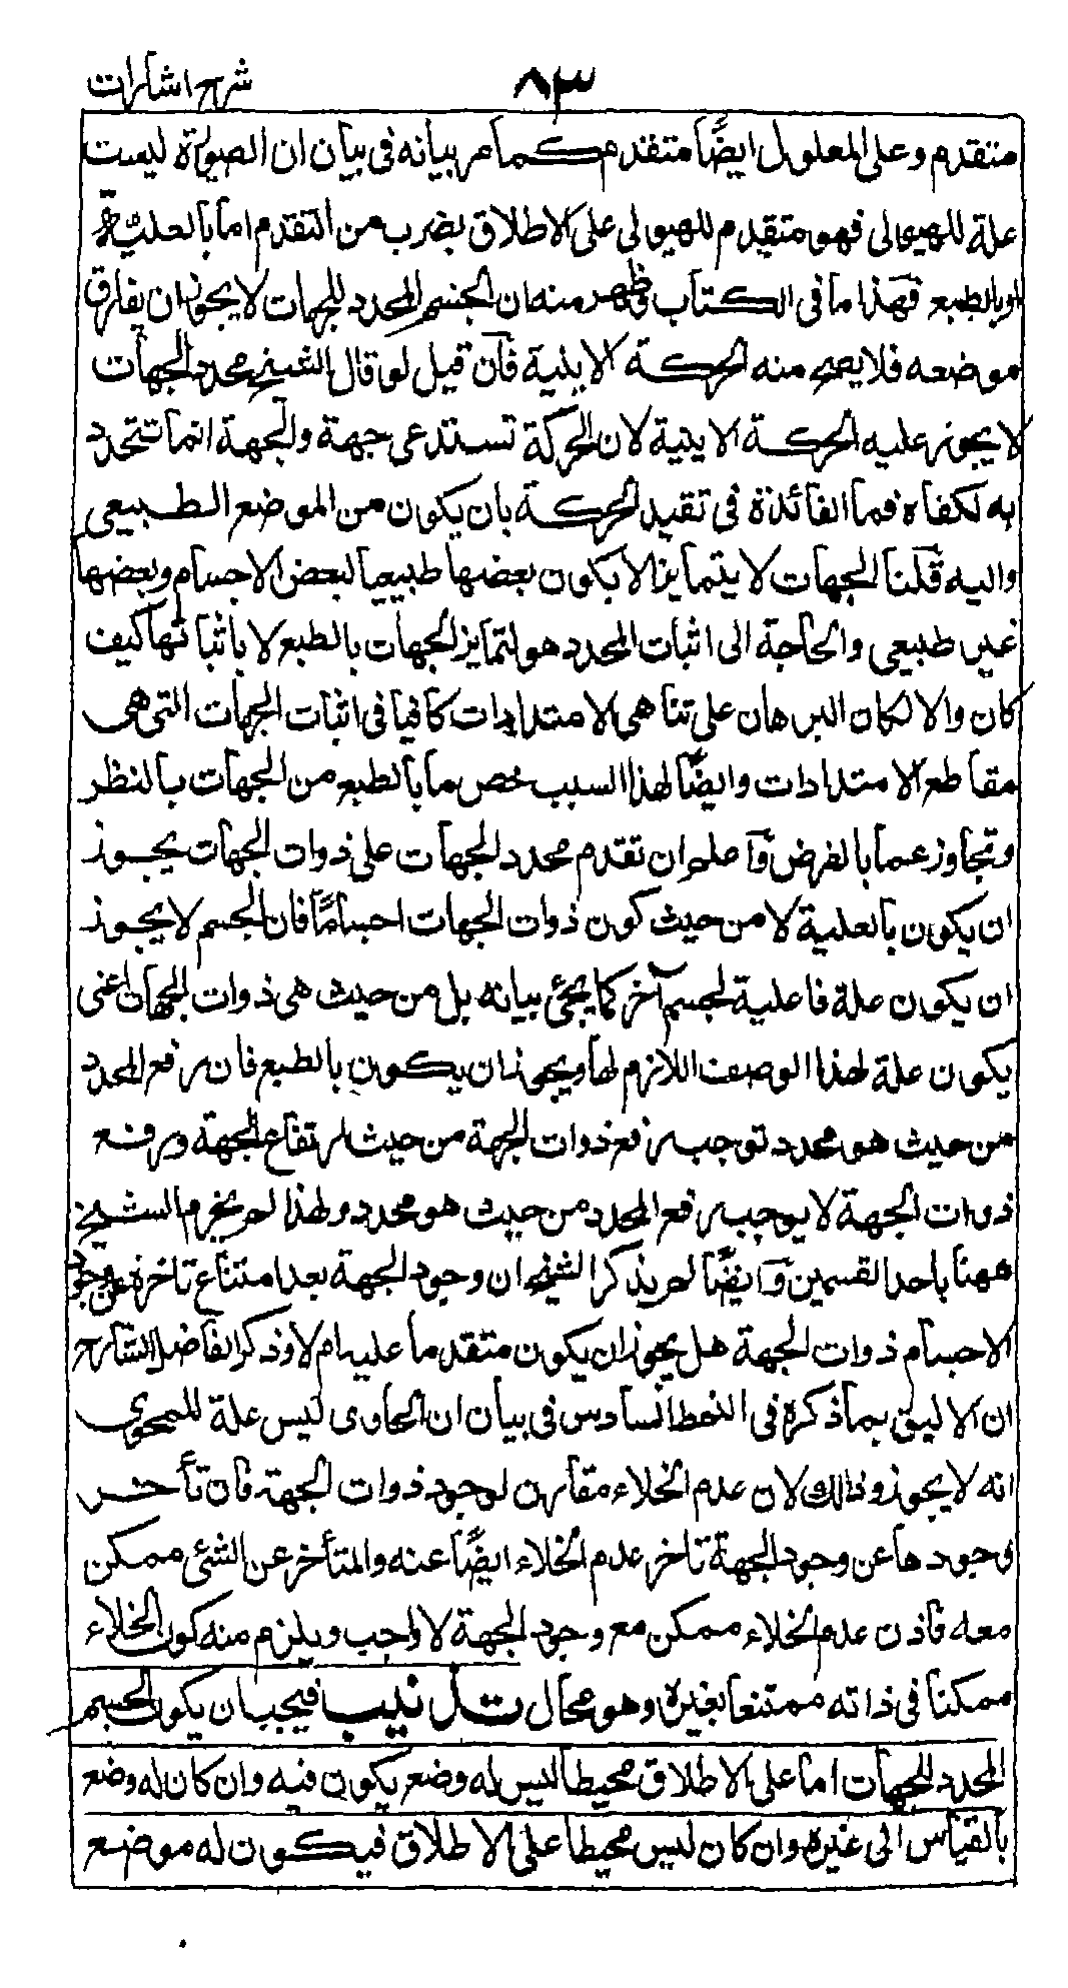 شرح اشارات ٨٣
متقدم وعلى المعلول ايضًا متقدم كما مر بيانه فى بيان ان الصورة ليست
علة للهيولى فهو متقدم للهيولى على الاطلاق بضرب من التقدم اما بالعلية
او بالطبع فهذا ما فى الكتاب وظهر منه ان الجسم المحدد للجهات لا يجوز ان يفارق
موضعه فلا يصح منه الحركة الاينية فان قيل لو قال الشيخ محدد الجهات
لا يجوز عليه الحركة الاينية لان الحركة تستدعى جهة والجهة انما تتحدد
به لكفاه فما الفائدة فى تقييد الحركة بان يكون من الموضع الطبيعى
واليه قلنا الجهات لا يتمايز الا بكون بعضها طبيعيا لبعض الاجسام وبعضها
غير طبيعى والحاجة الى اثبات المحدد هو لتمايز الجهات بالطبع لا باثباتها كيف
كان والا لكان البرهان على تناهى الامتدادات كافيا فى اثبات الجهات التى هى
مقاطع الامتدادات وايضًا لهذا السبب خص ما بالطبع من الجهات بالنظر
وتجاوز عما بالفرض واعلم ان تقدم محدد الجهات على ذوات الجهات يجوز
ان يكون بالعلية لا من حيث كون ذوات الجهات اجسامًا فان الجسم لا يجوز
ان يكون علة فاعلية لجسم آخر كما يجئ بيانه بل من حيث هى ذوات الجهات اعنى
يكون علة لهذا الوصف اللازم لها ويجوز ان يكون بالطبع فان رفع المحدد
من حيث هو محدد توجب رفع ذوات الجهة من حيث لارتفاع الجهة ورفع
ذوات الجهة لا يوجب رفع المحدد من حيث هو محدد ولهذا لم يجزم الشيخ
ههنا باحد القسمين وايضًا لم يذكر الشيخ ان وجود الجهة بعد امتناع تاخره عن وجود
الاجسام ذوات الجهة هل يجوز ان يكون متقدما عليه ام لا وذكر الفاضل الشارح
ان الاليق بما ذكره فى النمط السادس فى بيان ان الحاوى ليس علة للمحوى
انه لا يجوز وذلك لان عدم الخلاء مقارن لوجود ذوات الجهة فان تأخر
وجودها عن وجود الجهة تاخر عدم الخلاء ايضًا عنه والمتأخر عن الشئ ممكن
معه فاذن عدم الخلاء ممكن مع وجود الجهة لا واجب ويلزم منه كون الخلاء
ممكنا فى ذاته ممتنعا بغيره وهو محال تذنيب فيجب ان يكون الجسم
المحدد للجهات اما على الاطلاق محيطا ليس له وضع يكون فيه وان كان له وضع
بالقياس الى غيره وان كان ليس محيطا على الاطلاق فيكون له موضع